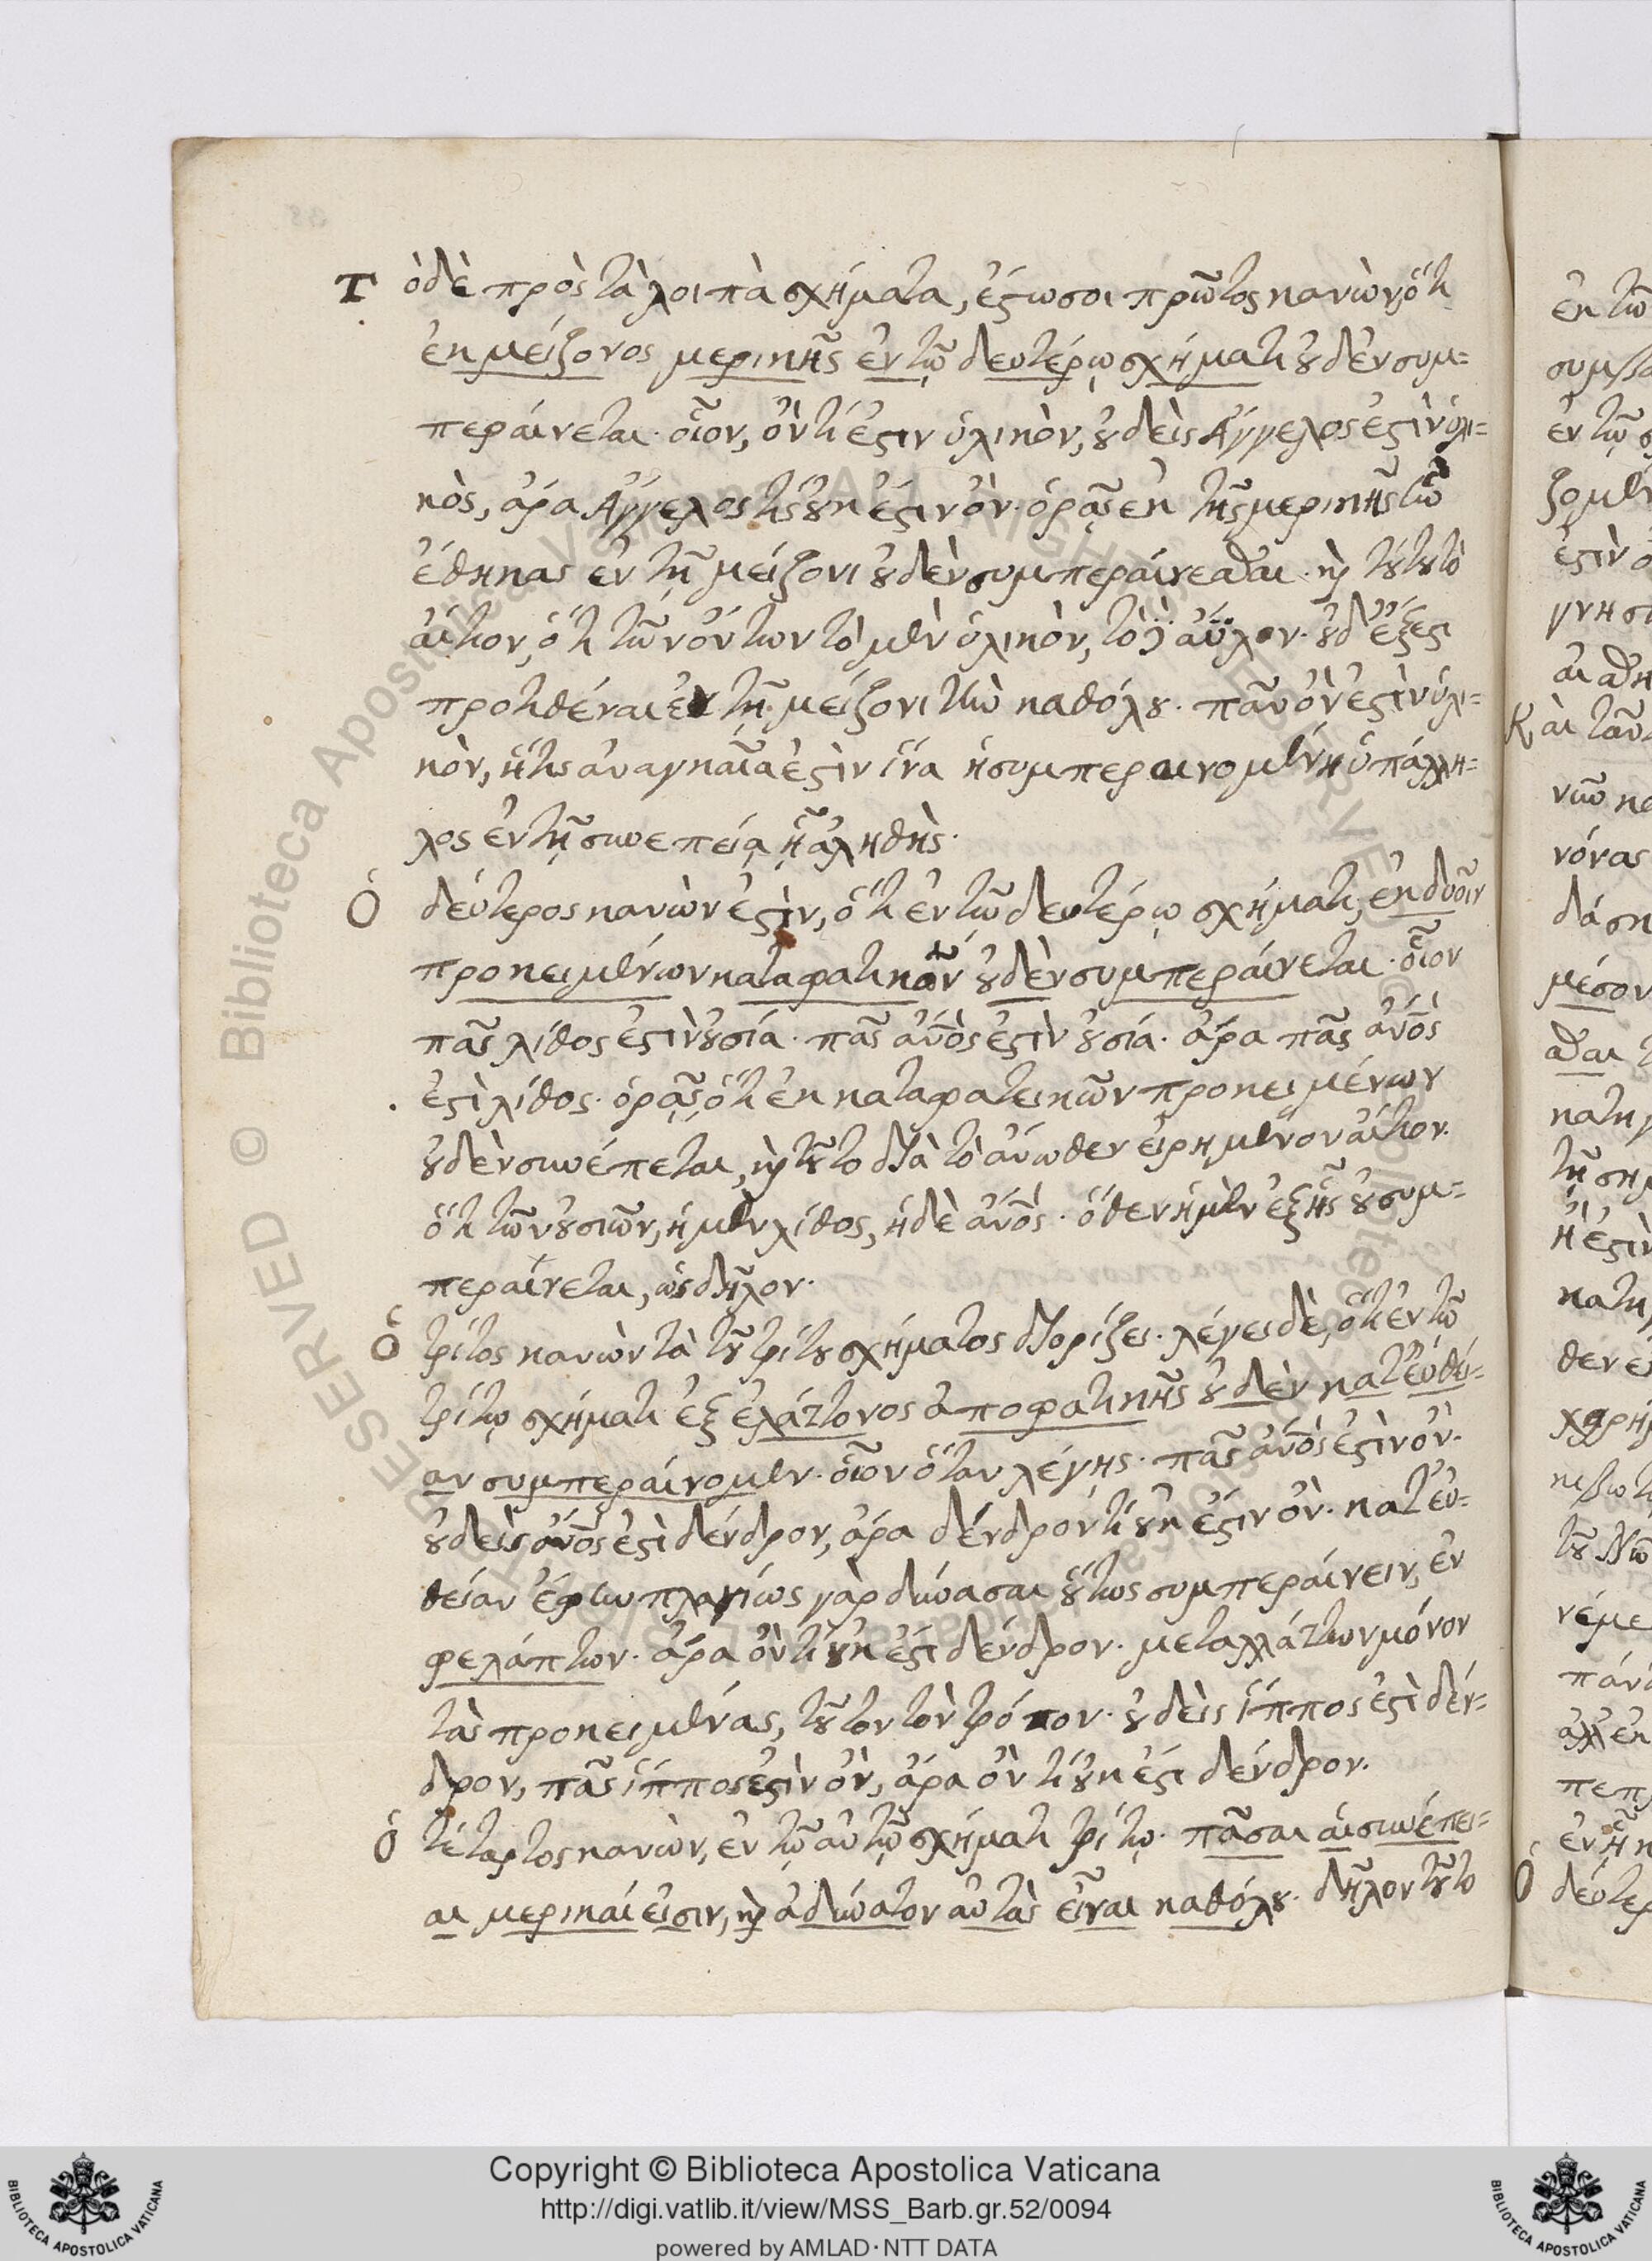 Τὸ δὲ πρὸς τὰ λοιπὰ σχήματα, ἔστω σοι πρῶτος κανὼν, ὅτι
ἐκ μείζονος μερικῆς ἐν τῷ δευτέρῳ σχήματι οὐδὲν συμ=
περαίνεται· οἷον, ὄν τί ἐστιν ὑλικὸν, οὐδεὶς Ἄγγελος ἐστὶν ὑλι=
κὸς, ἄρα Ἄγγελος τίς οὐκ ἔστιν ὄν· ὁρᾷς ἐκ τῆς μερικῆς
ἔθηκας ἐν τῇ μείζονι οὐδὲν συμπεραίνεσθαι· καὶ τούτου τὸ
αἴτιον, ὅτι τῶν ὄντων τὸ μὲν ὑλικὸν, τὸ δὲ ἄϋλον· οὐδ' ἔξεστι
προτιθέναι ἐν τῇ μείζονι τὴν καθόλου· πᾶν ὄν ἐστὶν ὑλι=
κὸν, ἥτις ἀναγκαῖα ἐστὶν ἵνα ἡ συμπεραινομένη ὑπάλλη=
λος ἐν τῇ συνεπείᾳ ᾖ ἀληθής·
Ὁ δεύτερος κανὼν ἐστὶν, ὅτι ἐν τῷ δευτέρῳ σχήματι, ἐκ δυοῖν
προκειμένων καταφατικῶν οὐδὲν συμπεραίνεται· οἷον
πᾶς λίθος ἐστὶν οὐσία· πᾶς ἄνος ἐστὶν οὐσία· ἄρα πᾶς ἄνος
ἐστὶ λίθος· ὁρᾷς, ὅτι ἐκ καταφατεικῶν προκειμένων
οὐδὲν συνέπεται, καὶ τοῦτο διὰ τὸ ἄνωθεν εἰρημένον αἴτιον·
ὅτι τῶν οὐσιῶν, ἡ μὲν λίθος, ἡ δὲ ἄνος· ὅθεν ἡ μὲν ἐξῆς οὐ συμ=
περαίνεται, ὡς δῆλον·
Ὁ τρίτος κανὼν τὰ τοῦ τρίτου σχήματος διορίζει· λέγει δὲ, ὅτι ἐν τῷ
τρίτῳ σχήματι ἐξ ἐλάττονος ἀποφατικῆς οὐδὲν κατ' εὐθεί=
αν συμπεραίνομεν· οἷον ὅταν λέγῃς· πᾶς ἄνος ἐστὶν ὄν·
οὐδεὶς ἄνος ἐστὶ δένδρον, ἄρα δένδρον τί οὐκ ἔστιν ὄν· κατ' εὐ=
θείαν ἔφην πλαγίως γὰρ δύνασαι οὕτως συμπεραίνειν, ἐν
φελάπτων· ἄρα ὄν τί οὐκ ἔστι δένδρον· μεταλλάττων μόνον
τὰς προκειμένας, τοῦτον τὸν τρόπον· οὐδεὶς ἵππος ἐστὶ δέν=
δρον, πᾶς ἵππος ἐστὶν ὄν, ἄρα ὄν τί οὐκ ἔστι δένδρον·
Ὁ τέταρτος κανὼν, ἐν τῷ αὐτῷ σχήματι τρίτῳ· πᾶσαι αἱ συνέπει=
αι μερικαί εἰσιν, καὶ ἀδύνατον αὐτὰς εἶναι καθόλου· δῆλον τοῦτο
Copyright © Biblioteca Apostolica Vaticana
http://digi.vatlib.it/view/MSS_Barb.gr.52/0094
powered by AMLAD·NTT DATA